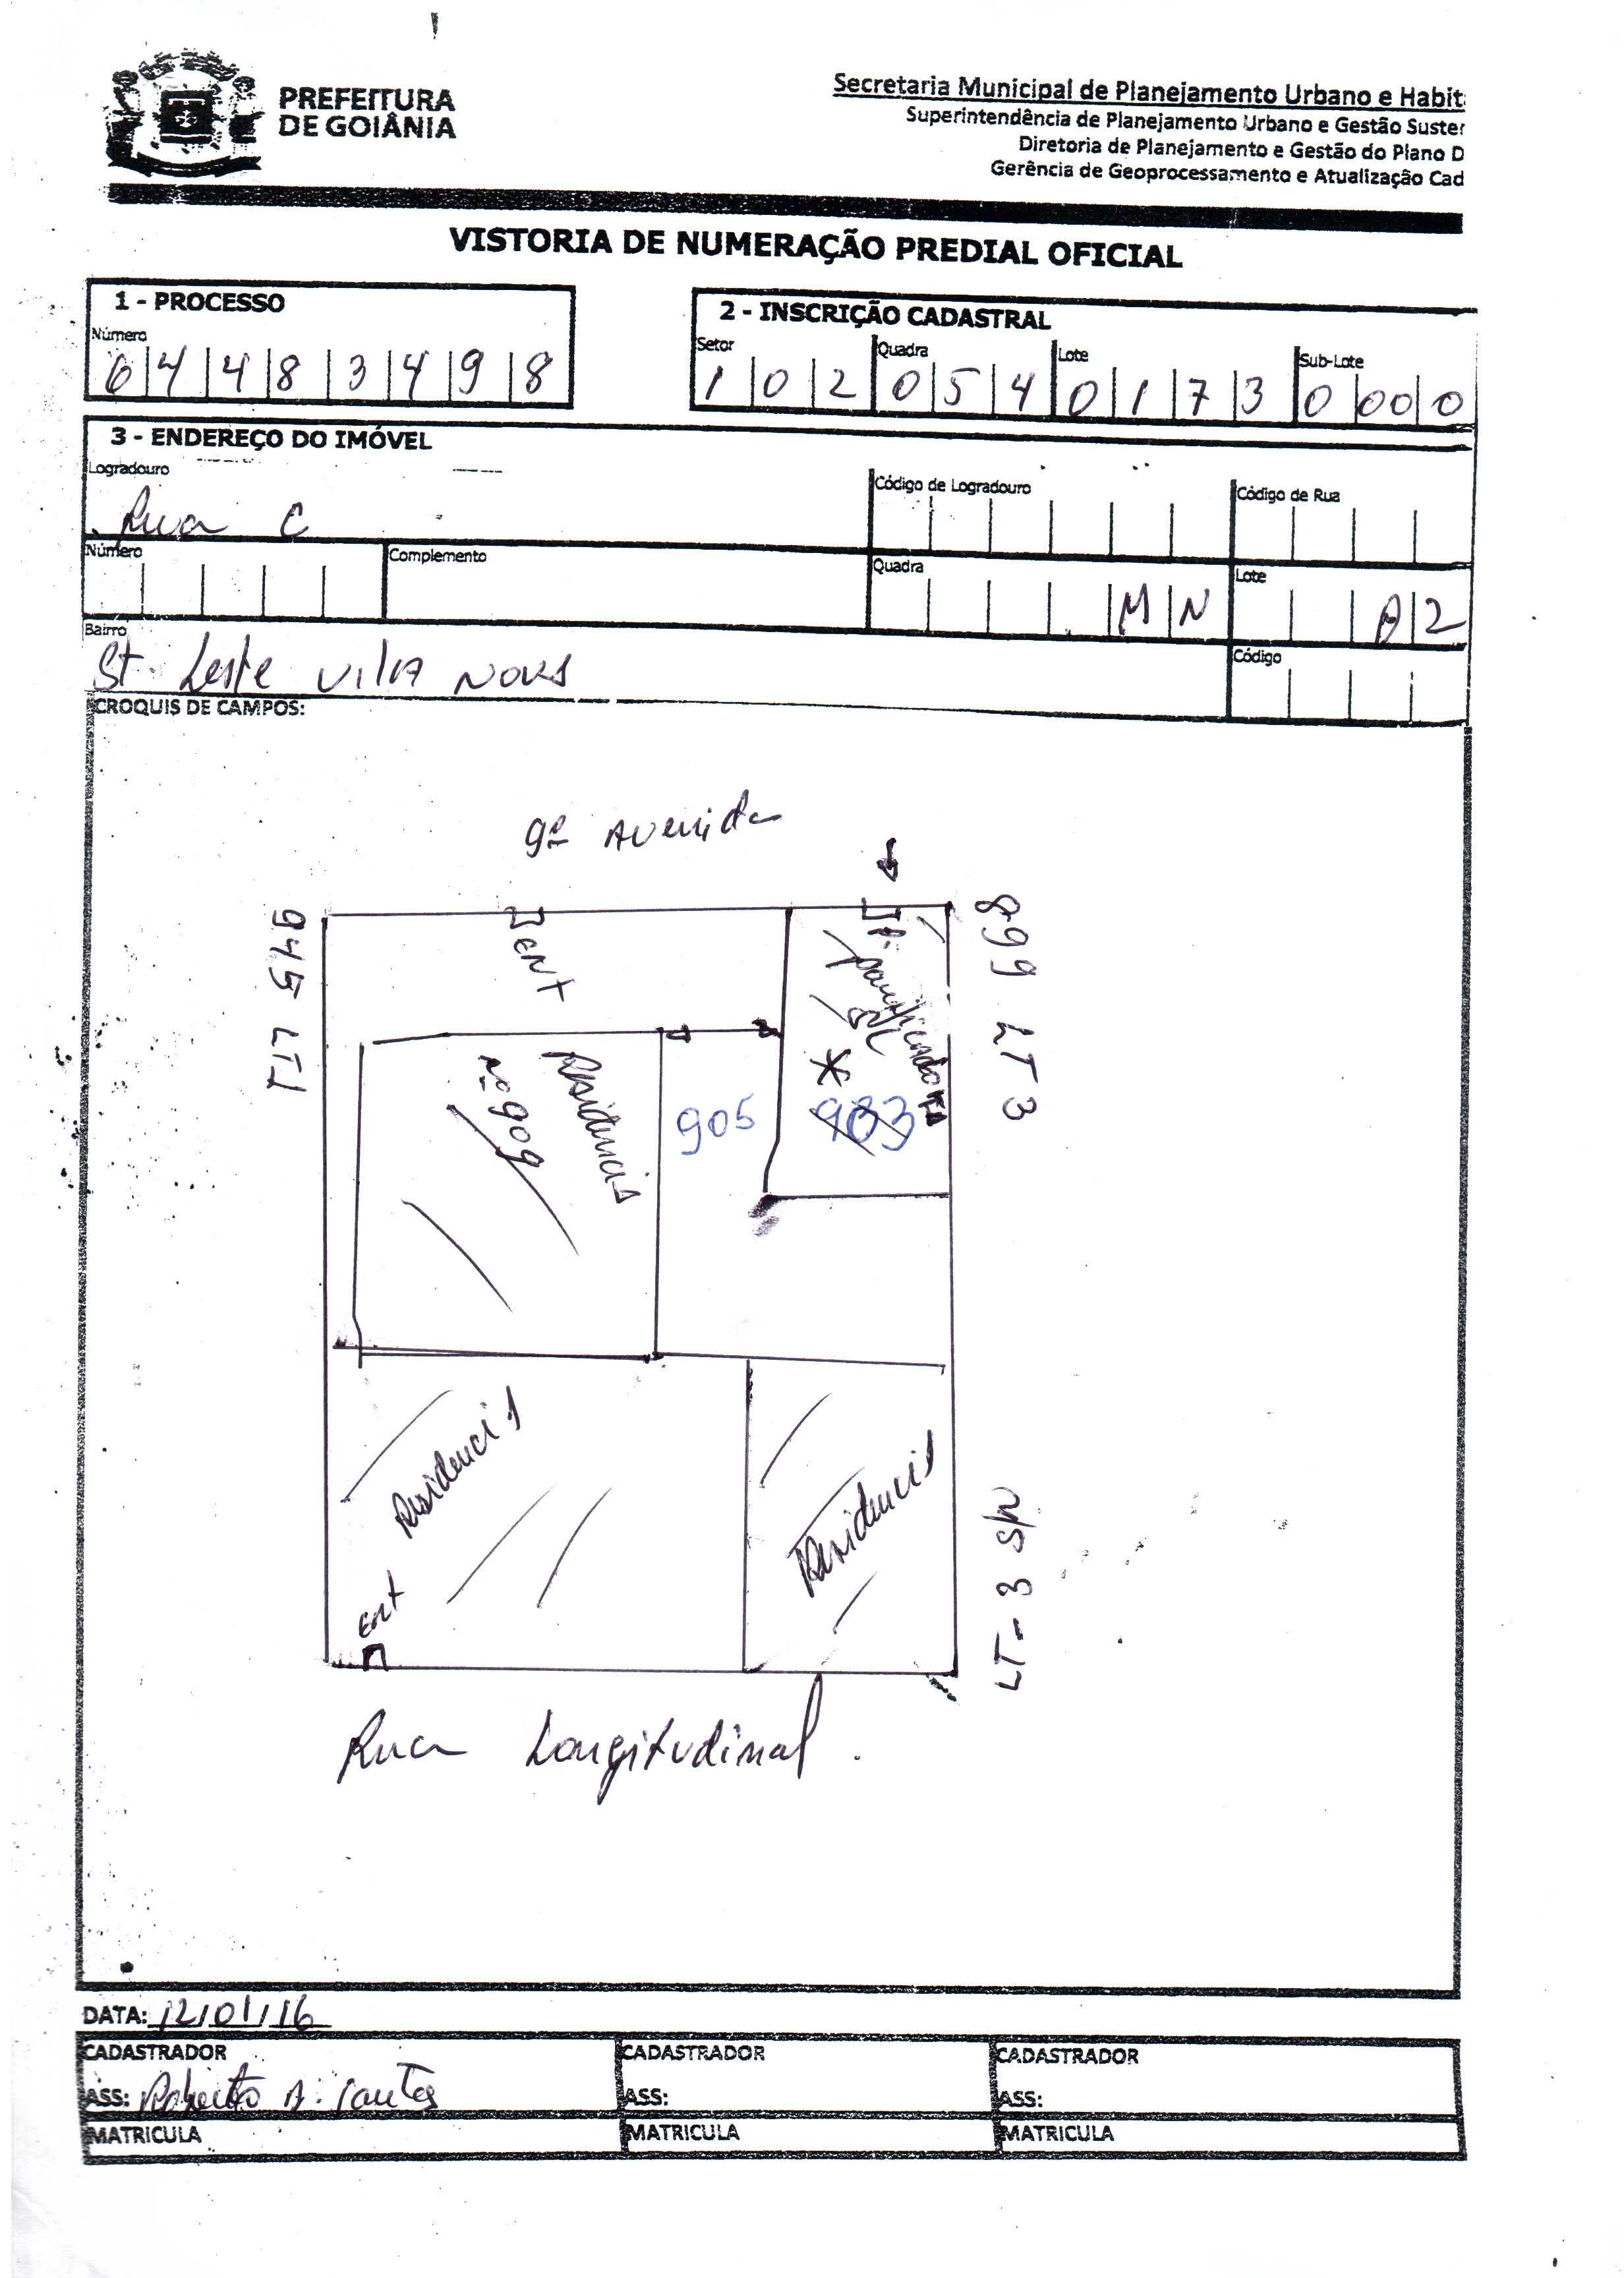 PREFEITURA
DE GOIÂNIA
Secretaria Municipal de Planejamento Urbano e Habit
Superintendência de Planejamento Urbano e Gestão Suster
Diretoria de Planejamento e Gestão do Plano D
Gerência de Geoprocessamento e Atualização Cad
VISTORIA DE NUMERAÇÃO PREDIAL OFICIAL
1 - PROCESSO
Número
6 4 4 8 3 4 9 8
2 - INSCRIÇÃO CADASTRAL
Setor Quadra Lote Sub-Lote
1 0 2 0 5 4 0 1 7 3 0 0 0 0
3 - ENDEREÇO DO IMÓVEL
Logradouro Código de Logradouro Código de Rua
Rua C
Número Complemento Quadra Lote
M N 02
Bairro Código
St. Leste Vila Nova
CROQUIS DE CAMPOS:
9ª Avenida
945 LT1
ENT
panificadora
899 LT 3
Residencia
nº 909
905
903
Residencia
Residencia
ENT
LT-3 S/N
Rua Longitudinal
DATA: 12/01/16
CADASTRADOR CADASTRADOR CADASTRADOR
ASS: Roberto A. Santos ASS: ASS:
MATRICULA MATRICULA MATRICULA